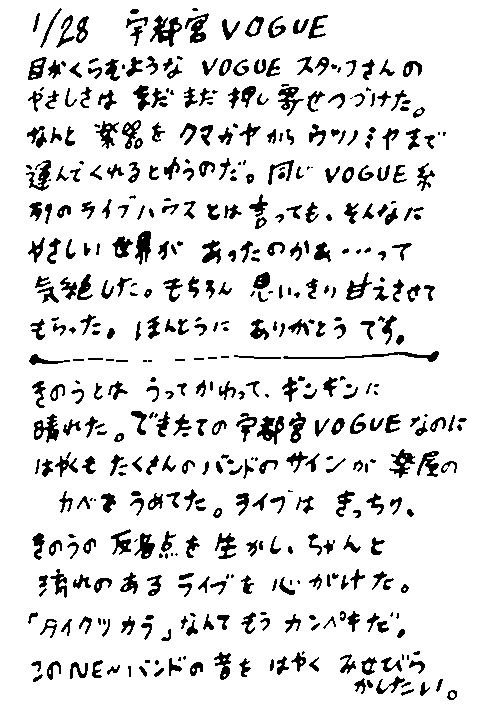 1/28 宇都宮VOGUE
目がくらむような VOGUE スタッフさんの
やさしさは まだ まだ 押し寄せつづけた。
なんと 楽器を クマガヤから ウツノミヤまで
運んでくれるとゆうのだ。同じ VOGUE系
列のライブハウスとは言っても、そんなに
やさしい世界が あったのかぁ…って
気絶した。もちろん 思いっきり甘えさせて
もらった。ほんとうに ありがとう です。
きのうとは うってかわって、ギンギンに
晴れた。できたての宇都宮VOGUEなのに
はやくも たくさんのバンドのサインが 楽屋の
カベを うめてた。ライブは きっちり、
きのうの 反省点を 生かし、ちゃんと
流れのある ライブを 心がけた。
「タイクツカラ」なんて もう カンペキだ。
このNE〜バンドの音を はやく みせびら
かしたい。